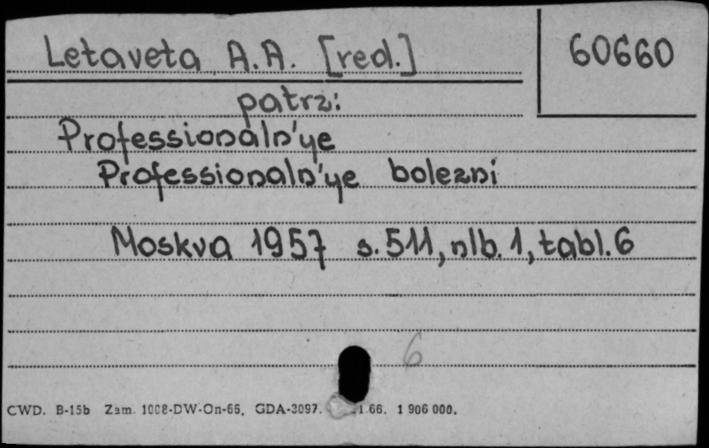 Letaveta A.A. [red.]
60660
patrz:
Professionaln'ye
Professionaln'ye bolezni
Moskva 1957 s. 511, nlb. 1, tabl. 6
6
CWD. B-15b Zam. 1008-DW-On-66. GDA-3097. 1.66. 1 906 000.